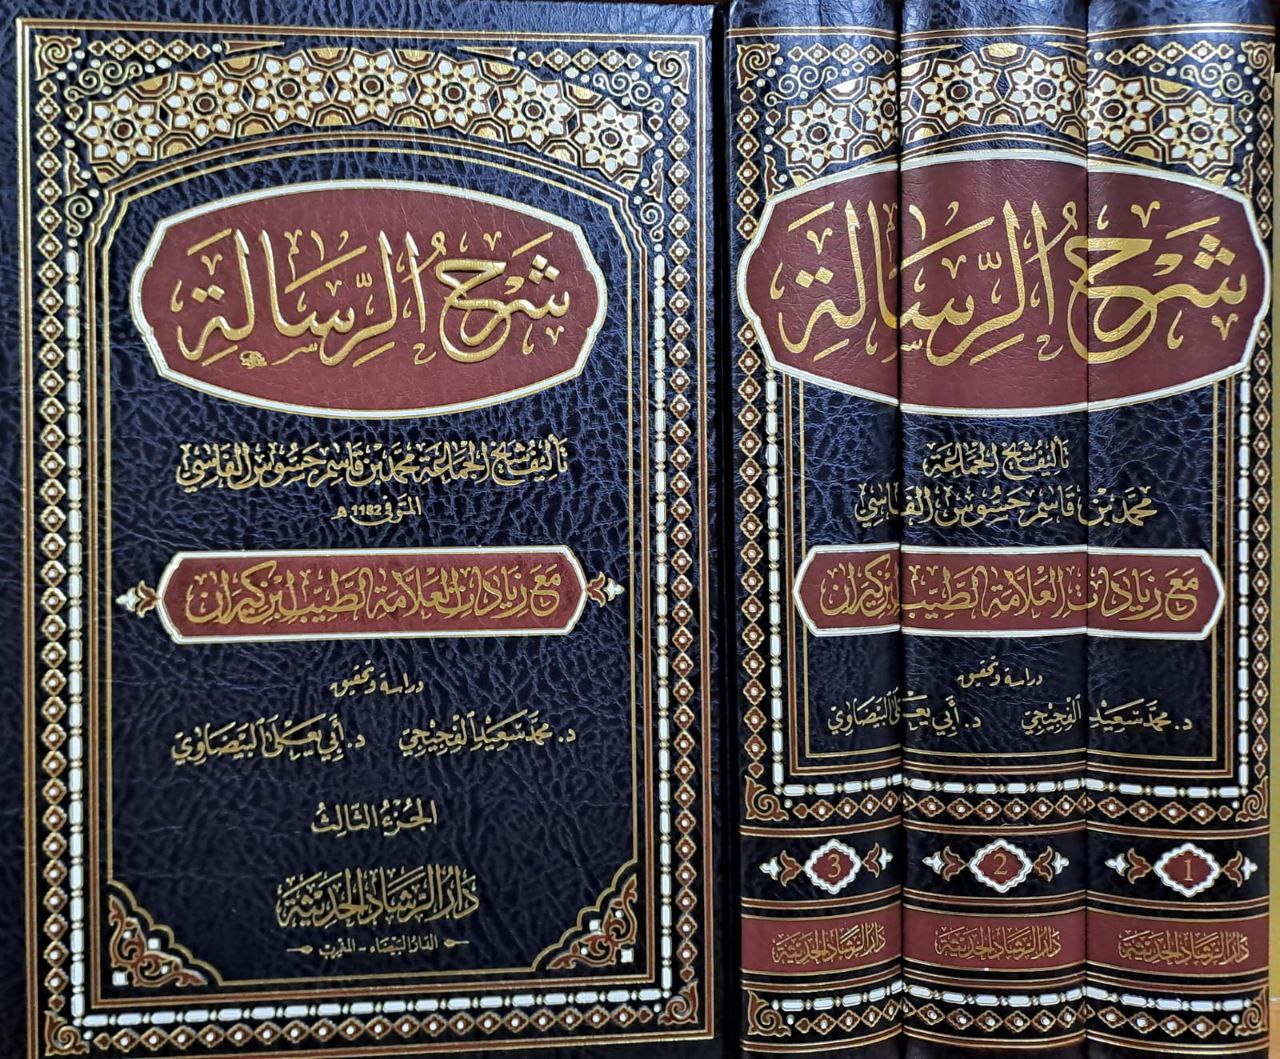 شرح الرسالة
تأليف شيخ الجماعة محمد بن قاسم جسوس الفاسي
المتوفى 1182هـ
مع زيادات العلامة الطيب ابن كيران
دراسة وتحقيق
د. محمد سعيد الفجيجي د. أبي يعلى البيضاوي
الجزء الثالث
دار الرشاد الحديثة
الدار البيضاء - المغرب
شرح الرسالة
تأليف شيخ الجماعة
محمد بن قاسم جسوس الفاسي
مع زيادات العلامة الطيب ابن كيران
دراسة وتحقيق
د. محمد سعيد الفجيجي د. أبي يعلى البيضاوي
1 2 3
دار الرشاد الحديثة دار الرشاد الحديثة دار الرشاد الحديثة